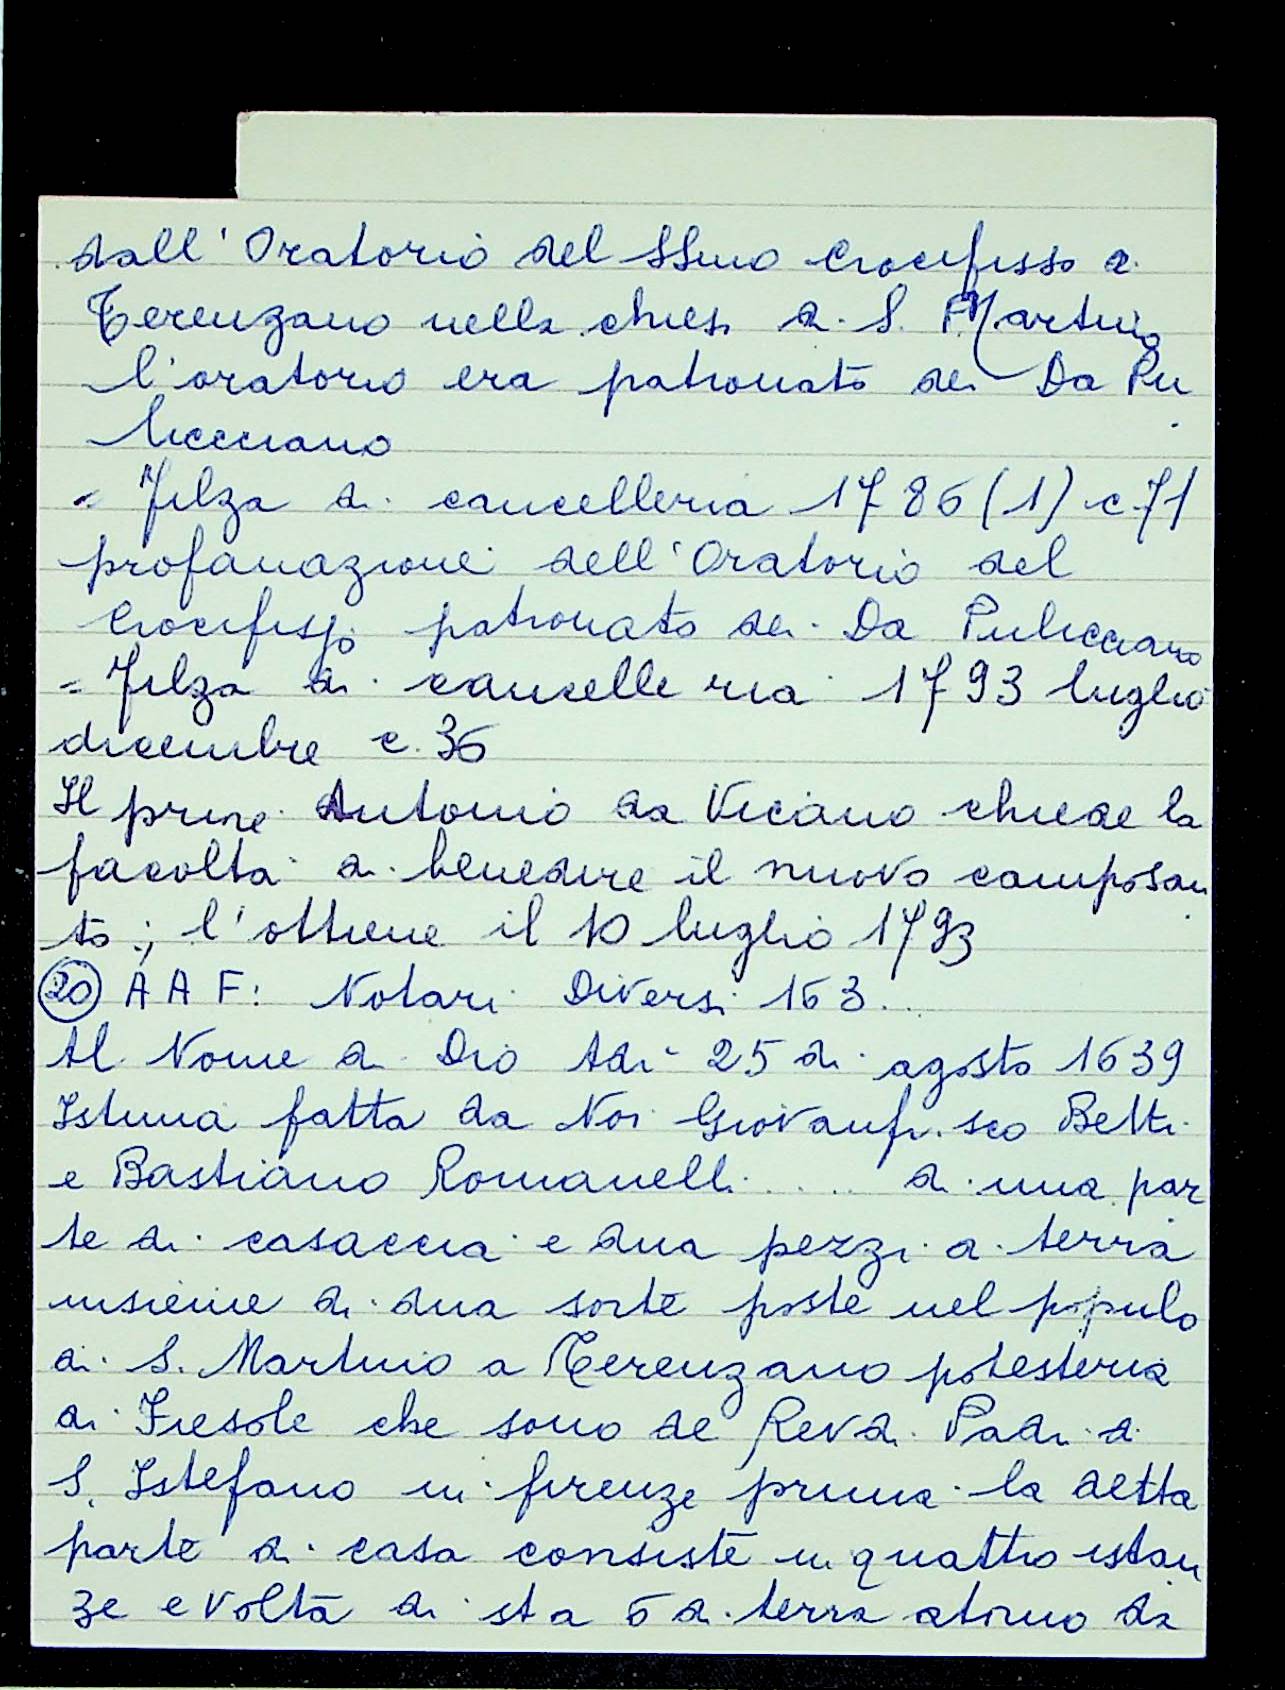 dall'Oratorio del SSmo Crocifisso a
Terenzano nella chiesa di S. Martino
l'oratorio era patronato dei Da Pu
licciano
= Filza di cancelleria 1786 (1) c 71
profanazione dell'Oratorio del
Crocifisso patronato dei Da Pulicciano
= Filza di cancelleria 1793 luglio
dicembre c. 36
Il priore Antonio da Vicano chiede la
facoltà di benedire il nuovo camposan
to ; l'ottiene il 10 luglio 1793
(20) A A F: Notari Diversi 163..
Al Nome di Dio Adi 25 di agosto 1639
Istima fatta da Noi Giovanfr.sco Betti
e Bastiano Romanelli ..... di una par
te di casaccia e dua pezzi di terra
insieme di dua sorte poste nel populo
di S. Martino a Terenzano potesteria
di Fiesole che sono de Revdi Padri di
S. Istefano in firenze prima la detta
parte di casa consiste in quattro istan
ze e volta di sta 6 di terra atorno da